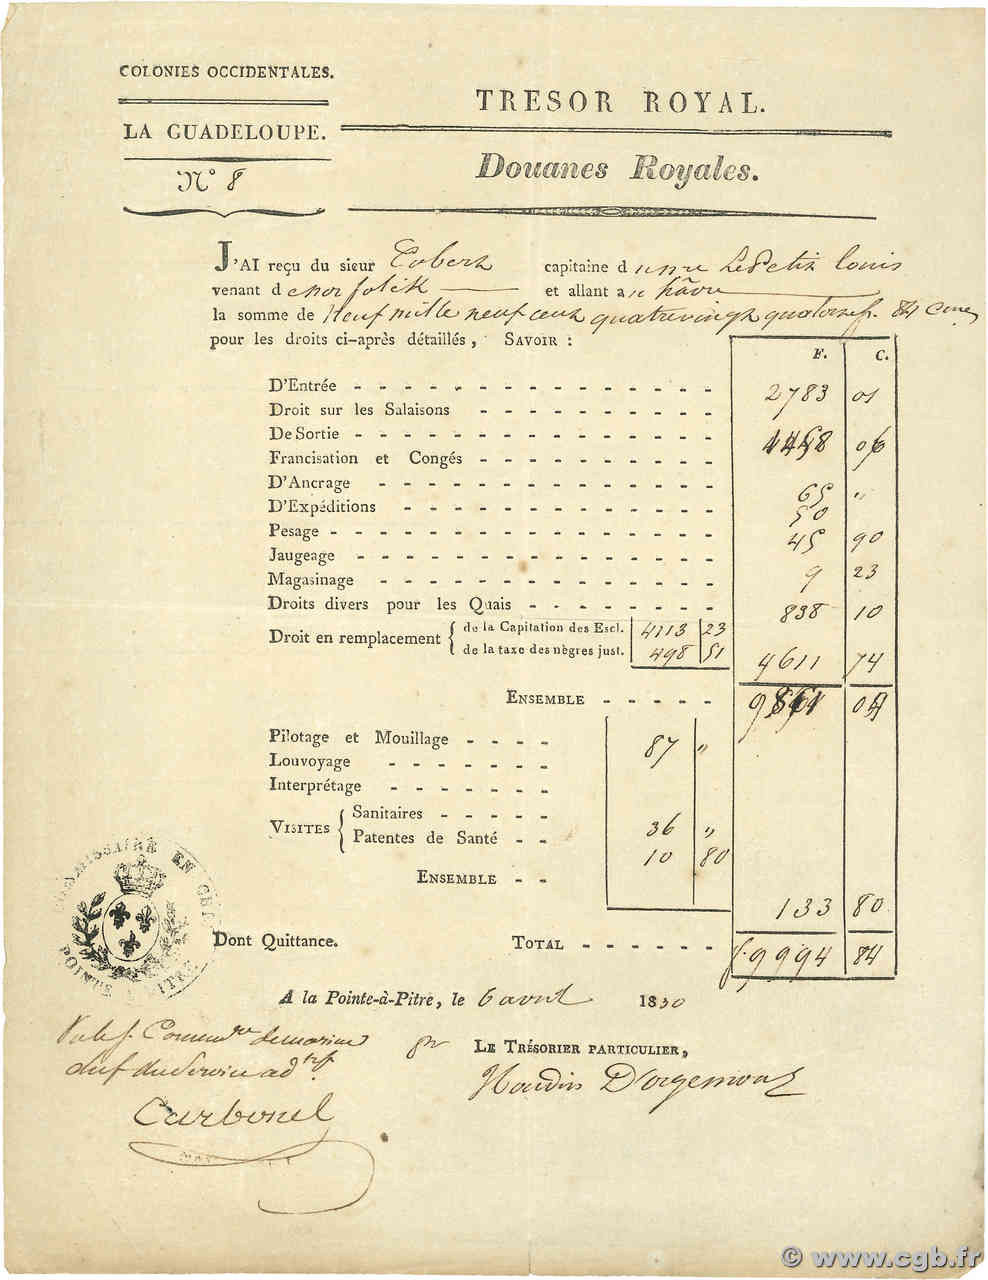 COLONIES OCCIDENTALES.
LA GUADELOUPE.
N° 8
TRESOR ROYAL.
Douanes Royales.
J'AI reçu du sieur capitaine d Le Petit Louis
venant de norfolck et allant au hâvre
la somme de Neuf mille neuf cent quatrevingt quatorze f. 84 
pour les droits ci-après détaillés, SAVOIR :
F. C.
D'Entrée - - - 2783 01
Droit sur les Salaisons - - -
De Sortie - - - 1458 06
Francisation et Congés - - -
D'Ancrage - - - 65 "
D'Expéditions - - - 50
Pesage - - - 45 90
Jaugeage - - -
Magasinage - - - 9 23
Droits divers pour les Quais - - - 838 10
Droit en remplacement { de la Capitation des Escl. 4113 23
de la taxe des nègres just. 498 51
4611 74
ENSEMBLE - - - 9861 04
Pilotage et Mouillage - - - 87 "
Louvoyage - - -
Interprétage - - -
VISITES { Sanitaires - - - 36 "
Patentes de Santé - - 10 80
ENSEMBLE - - 133 80
Dont Quittance. TOTAL - - - f. 9994 84
COMMISSAIRE EN
POINTE
A la Pointe-à-Pitre, le 6 avril 1830
LE TRÉSORIER PARTICULIER,
Vu le f. de marine
chef du Service
Houdin D'orgemont
Carbonel
© www.cgb.fr